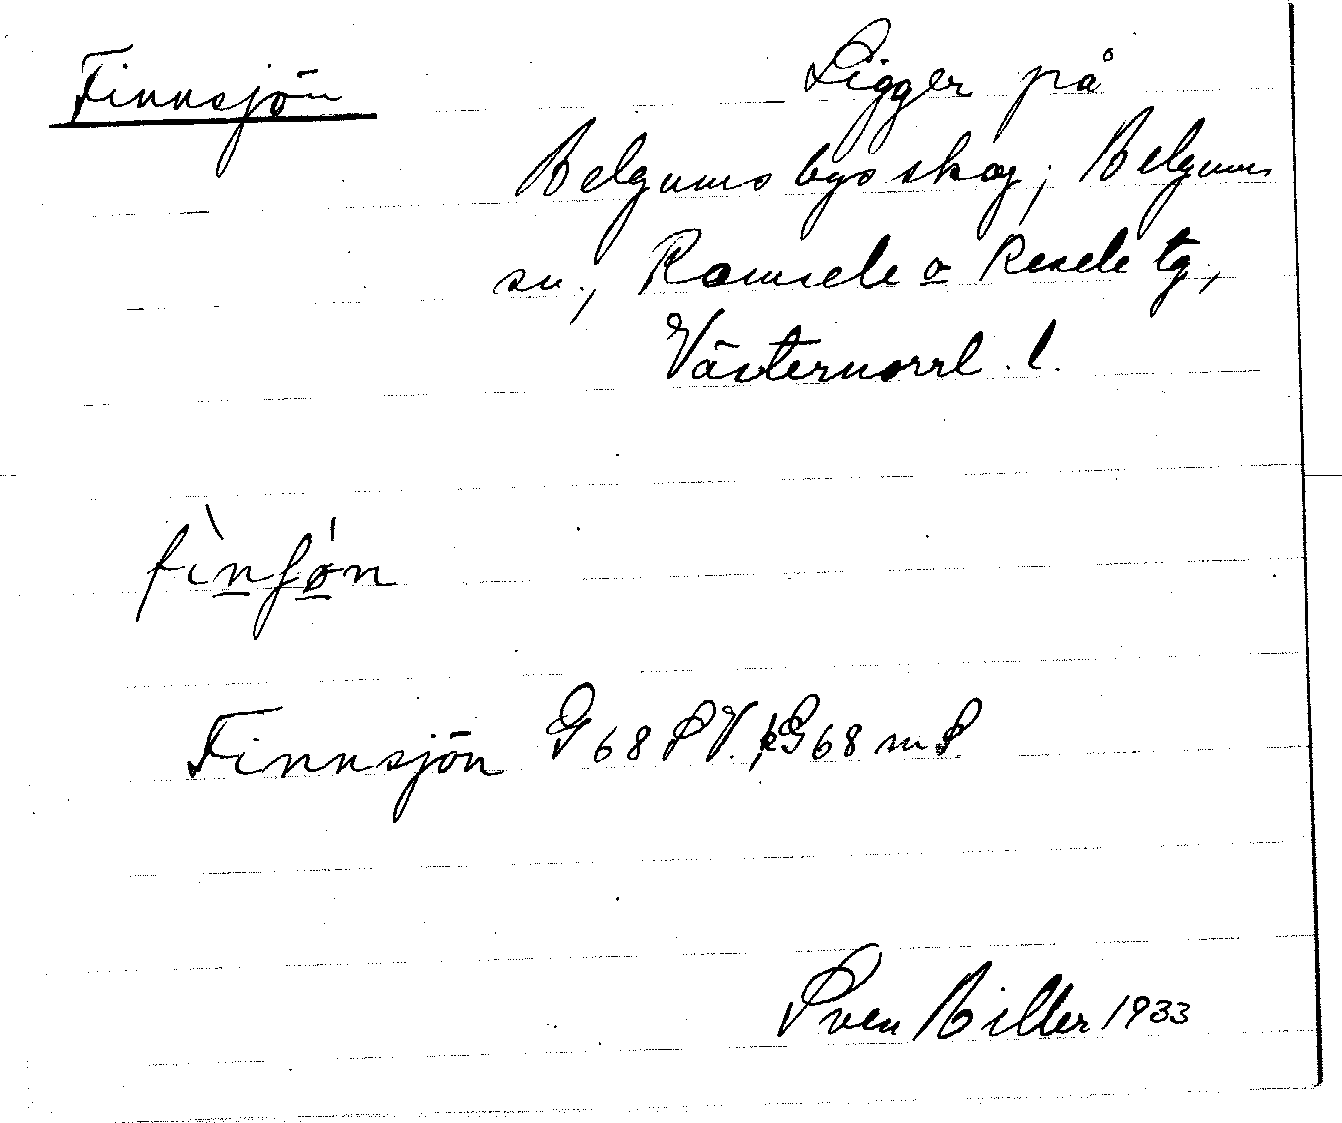 Finnsjön
Ligger på
Helgums bys skog, Helgums
sn., Ramsele o Resele tg,
Västernorrl. l.
fìnʃǿn
Finnsjön G 68 SV. kG 68 m S.
Sven Hiller 1933